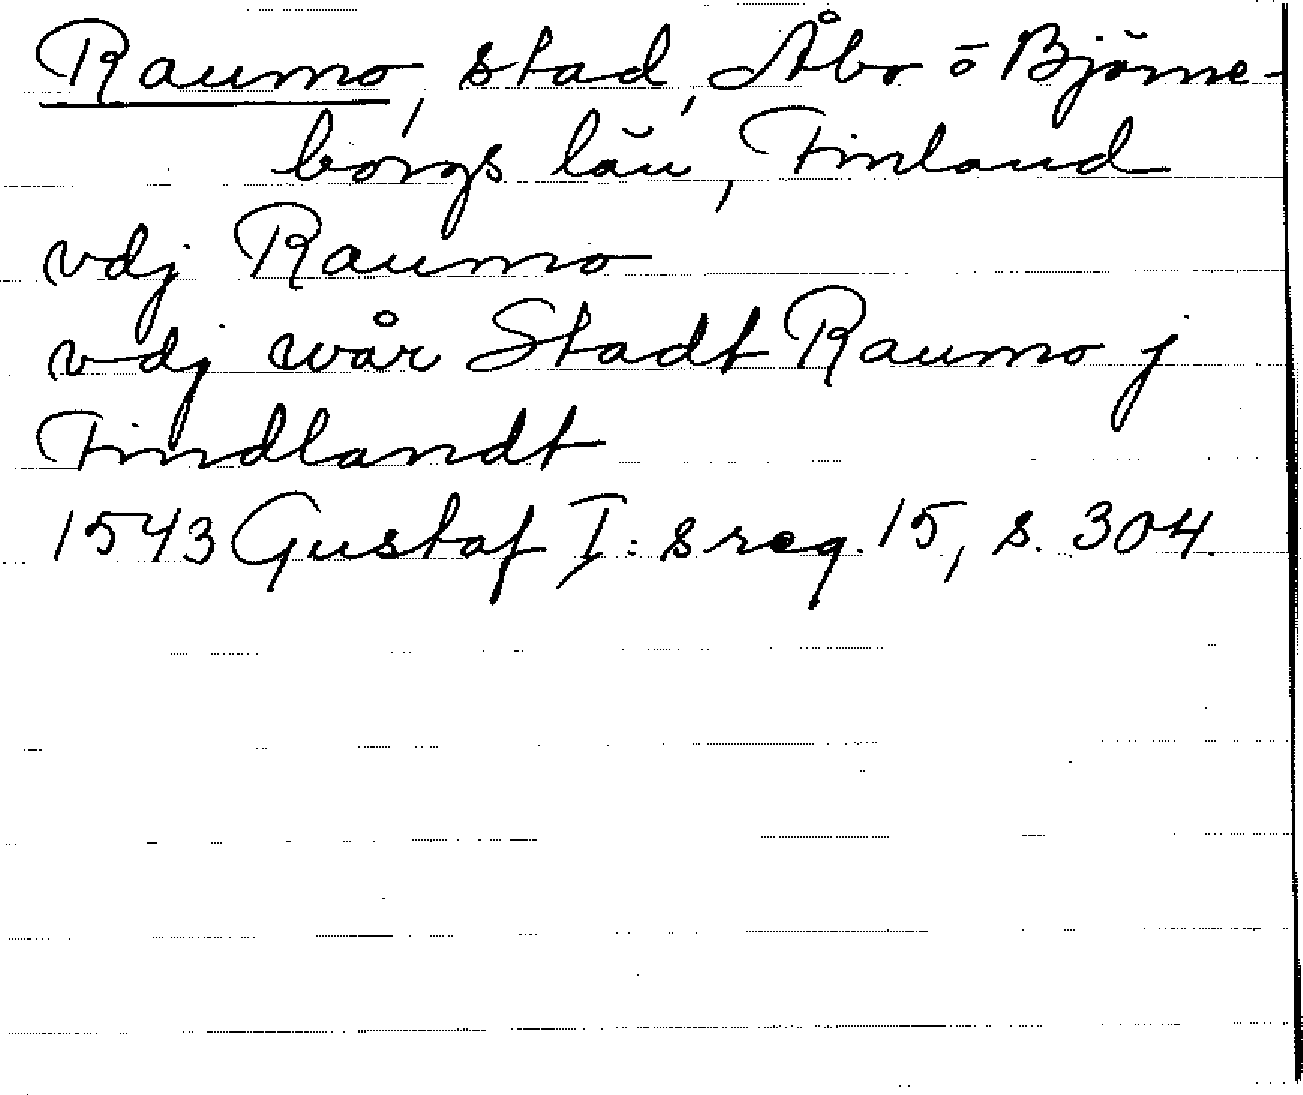 Raumo, stad, Åbo o Björne-
borgs län, Finland
vdj Raumo
vdj wår Stadt Raumo j
Findlandt
1543 Gustaf I:s reg. 15, s. 304.